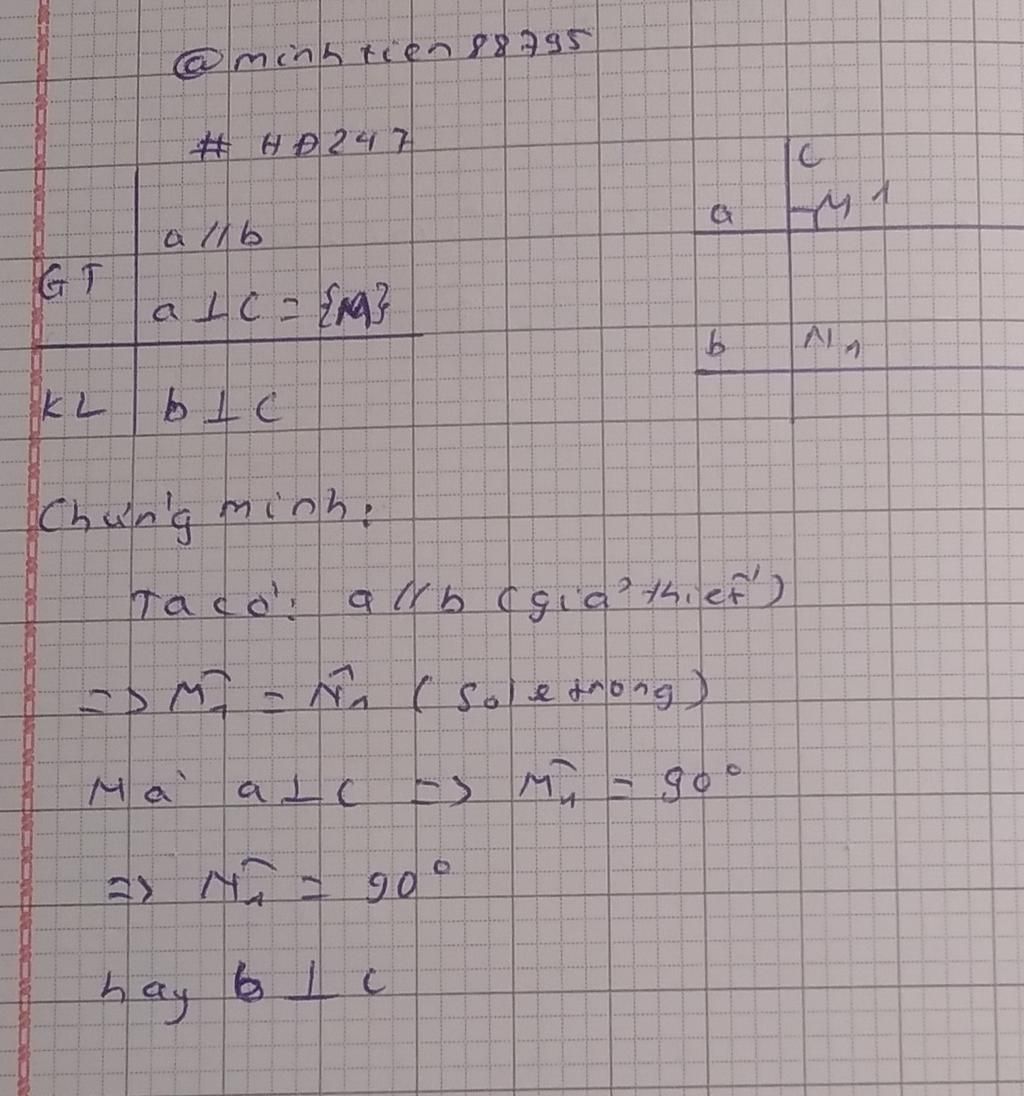 @minhtien88795
# HĐ247
GT
a // b
a ⊥ c = {M}
KL
b ⊥ c
c
a
M 1
b
N1
Chứng minh:
Ta có: a // b (giả thiết)
=> M̂1 = N̂1 (so le trong)
Mà a ⊥ c => M̂1 = 90°
=> N̂1 = 90°
hay b ⊥ c